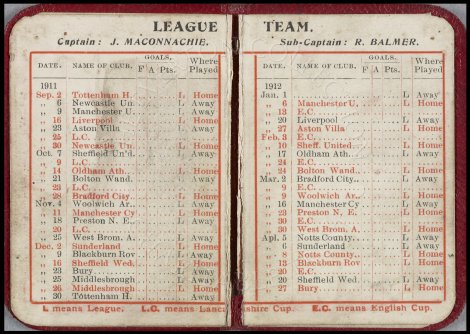 LEAGUE TEAM.
Captain: J. MACONNACHIE. Sub-Captain: R. BALMER.
DATE. NAME OF CLUB. GOALS. F A Pts. Where Played
1911
Sep. 2 Tottenham H. L Home
„ 6 Newcastle Un. L Away
„ 9 Manchester U. L Away
„ 16 Liverpool L Home
„ 23 Aston Villa L Away
„ 25 L.C.
„ 30 Newcastle Un. L Home
Oct. 7 Sheffield Un'd. L Away
„ 9 L.C.
„ 14 Oldham Ath. L Home
„ 21 Bolton Wand. L Away
„ 23 L.C.
„ 28 Bradford City L Home
Nov. 4 Woolwich Ar. L Away
„ 11 Manchester Cy L Home
„ 18 Preston N. E. L Away
„ 20 L.C.
„ 25 West Brom. A. L Away
Dec. 2 Sunderland L Home
„ 9 Blackburn Rov L Away
„ 16 Sheffield Wed. L Home
„ 23 Bury L Away
„ 25 Middlesbrough L Away
„ 26 Middlesbrough L Home
„ 30 Tottenham H. L Away
L means League. L.C. means Lancashire Cup. E.C. means English Cup.
DATE. NAME OF CLUB. GOALS. F A Pts. Where Played
1912
Jan. 1 L Away
„ 6 Manchester U. L Home
„ 13 E.C.
„ 20 Liverpool L Away
„ 27 Aston Villa L Home
Feb. 3 E.C.
„ 10 Sheff. United L Home
„ 17 Oldham Ath. L Away
„ 24 E.C.
„ 24 Bolton Wand. L Home
Mar. 2 Bradford City L Away
„ 9 E.C.
„ 9 Woolwich Ar. L Home
„ 16 Manchester Cy L Away
„ 23 Preston N. E. L Home
„ 30 E.C.
„ 30 West Brom. A. L Home
Apr. 5 Notts County L Away
„ 6 Sunderland L Away
„ 8 Notts County L Home
„ 13 Blackburn Rov L Home
„ 20 E.C.
„ 20 Sheffield Wed. L Away
„ 27 Bury L Home